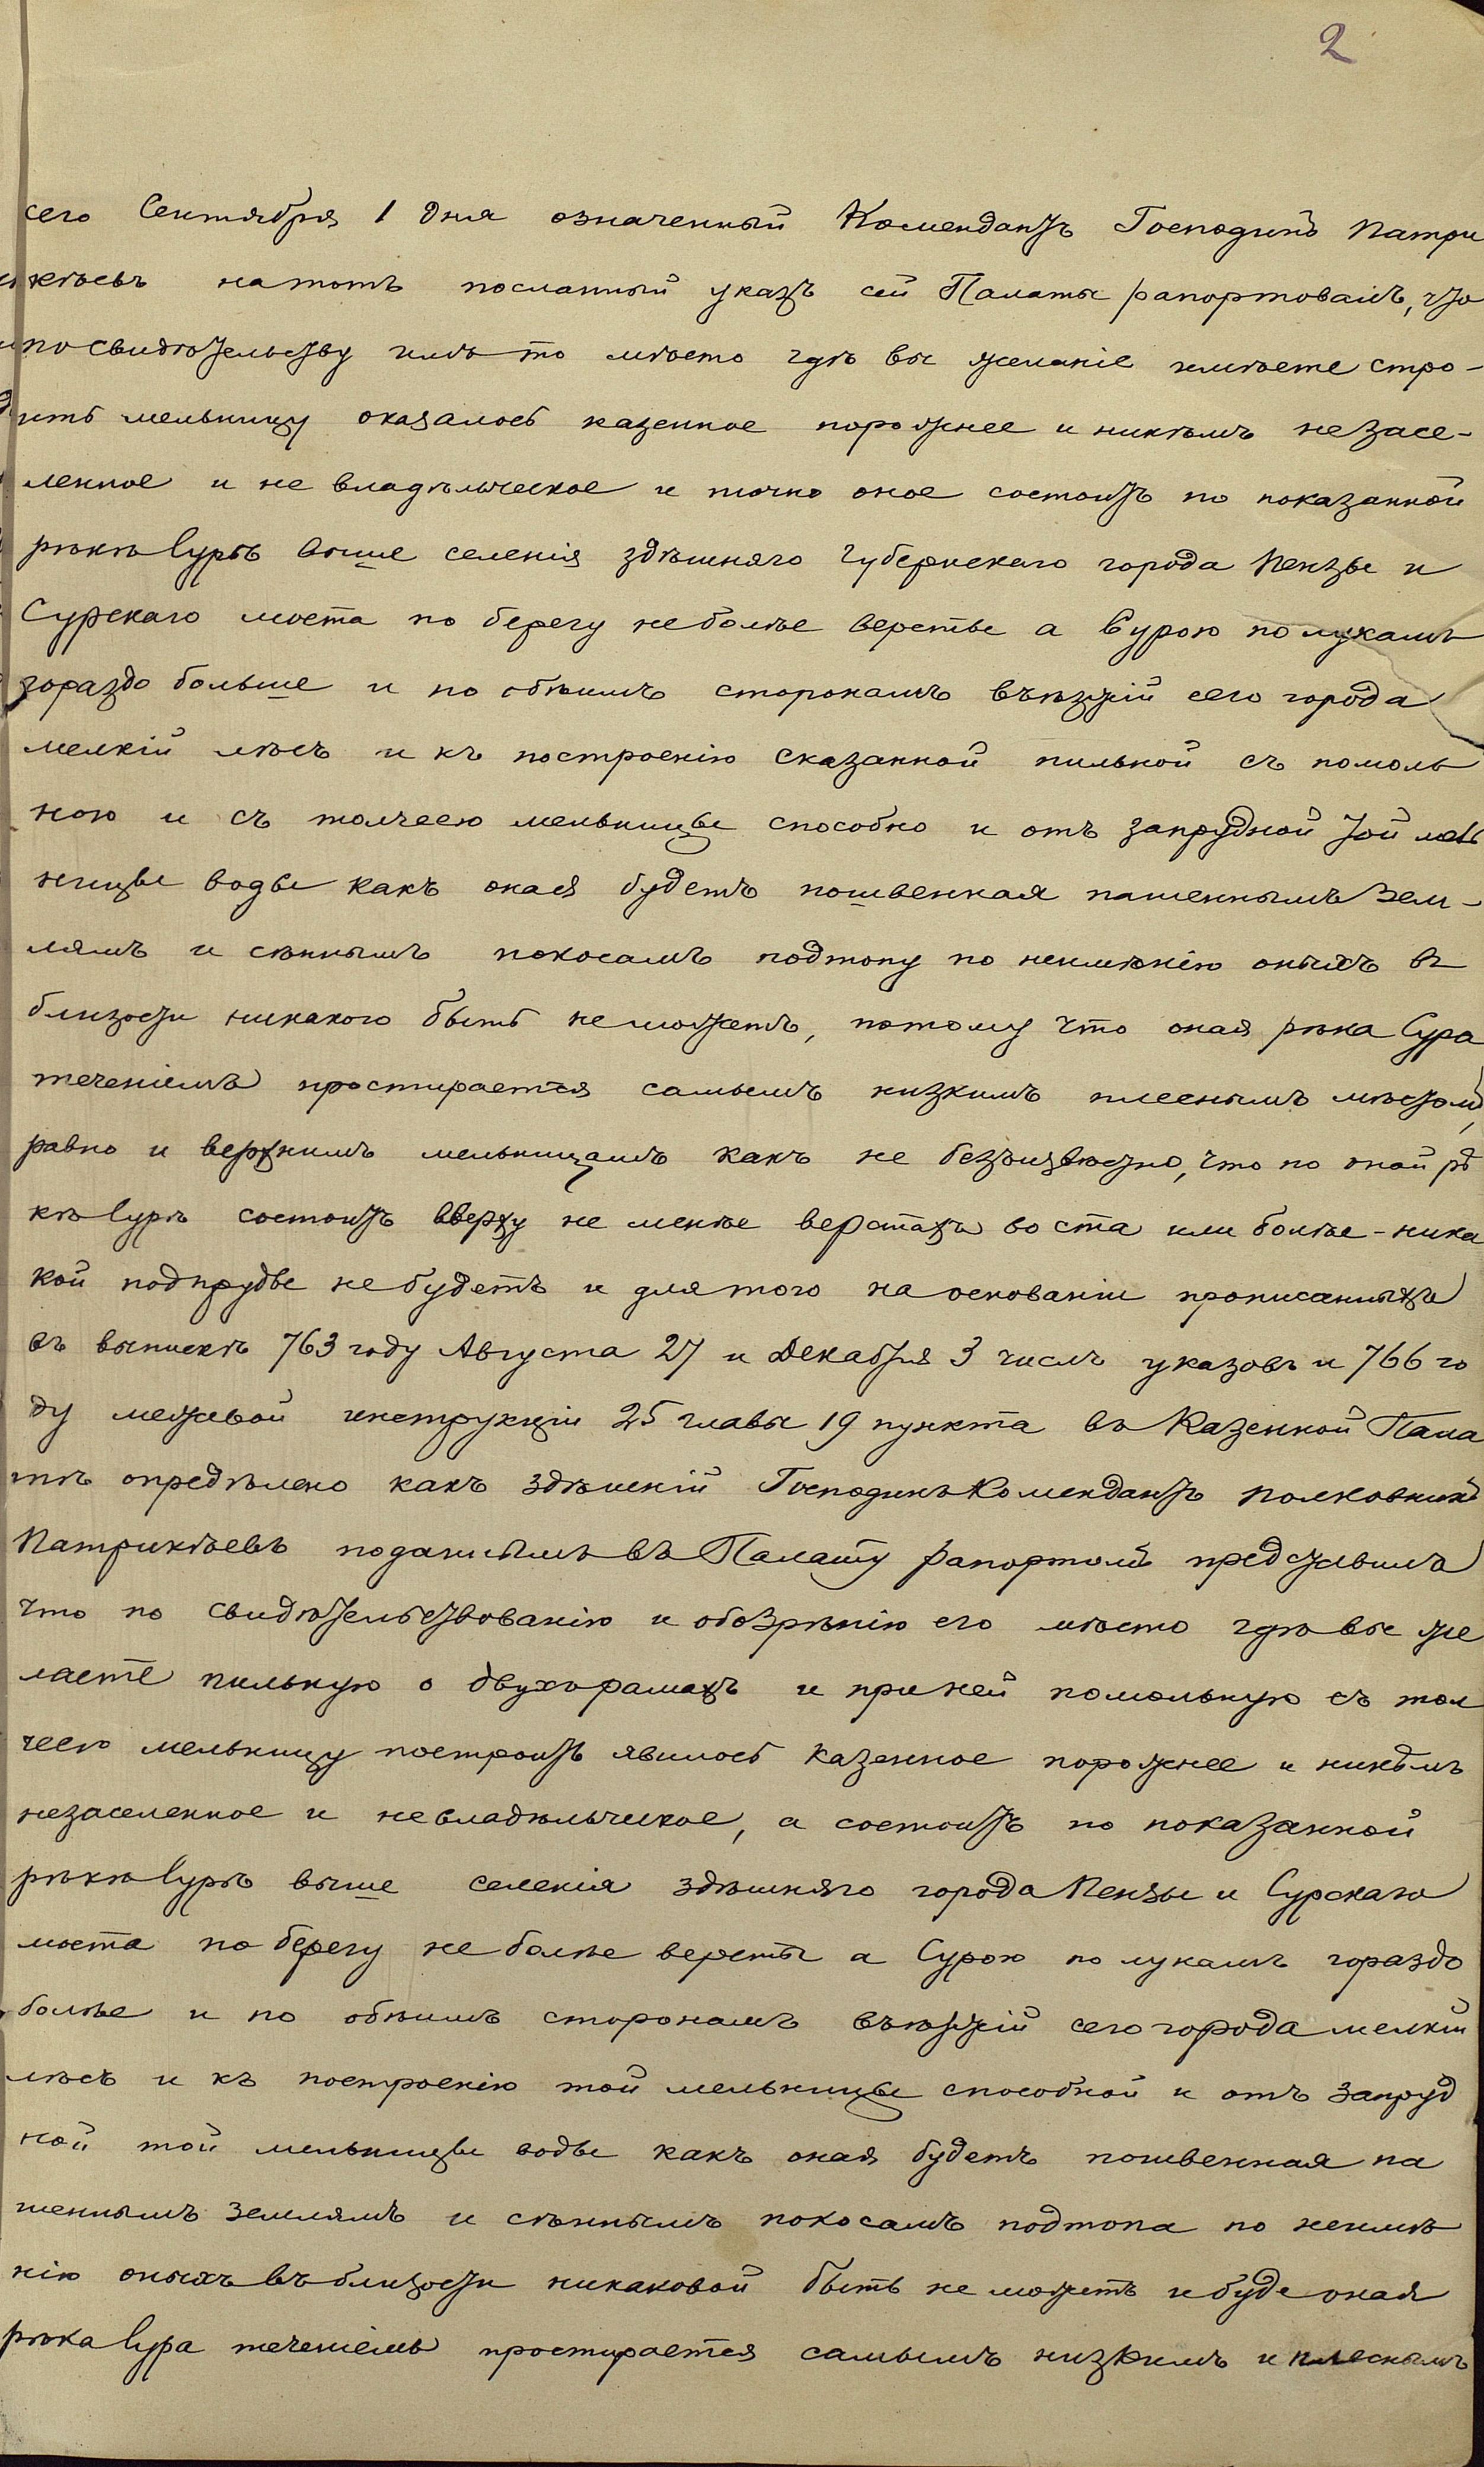 2
сего Сентября 1 дня означенный Комендантъ Господинъ Патри
кѣевъ натотъ посланный указъ сей Палаты рапортовалъ, что
по свидѣтельству имъ то мѣсто гдѣ вы желаніе имѣете стро-
ить мельницу оказалось казенное порожнее и никѣмъ незасе-
ленное и не владѣльческое и точно оное состоитъ по показанной
рѣкѣ Сурѣ выше селенія здѣшняго Губернскаго города Пензы и
Сурскаго моста по берегу неболѣе версты а Сурою по лукамъ
гораздо больше и по обѣимъ сторонамъ въѣзжій сего города
мелкій лѣсъ и къ построенію сказанной пильной съ помоль
ною и съ толчеею мельницы способно и отъ запрудной той мель
ницы воды какъ оная будетъ пошвенная пашеннымъ зем-
лямъ и сѣннымъ покосамъ подтопу по неимѣнію оныхъ въ
близости никакого быть неможетъ, потому что оная рѣка Сура
теченіемъ простирается самымъ низкимъ плеснымъ мѣстомъ,
равно и верхнимъ мельницамъ какъ не безъизвѣстно, что по оной рѣ
кѣ Сурѣ состоитъ вверху не менѣе верстахъ во ста или болѣе - ника
кой подпруды небудетъ и для того на основаніи прописанныхъ
въ выпискѣ 763 году Августа 27 и Декабря 3 числъ указовъ и 766 го
ду межевой инструкціи 25 главы 19 пункта въ Казенной Пала
тѣ опредѣлено какъ здѣшній Господинъ Комендантъ полковникъ
Патрикѣевъ поданнымъ въ Палату рапортомъ представилъ
что по свидѣтельствованію и обозрѣнію его мѣсто гдѣ вы же
лаете пильную о двухъ рамахъ и при ней помольную съ тол
чеею мельницу построить явилось казенное порожнее и никѣмъ
незаселенное и невладѣльческое, а состоитъ по показанной
рѣкѣ Сурѣ выше селенія здѣшняго города Пензы и Сурскаго
моста по берегу не болѣе версты а Сурою по лукамъ гораздо
болѣе и по обѣимъ сторонамъ въѣзжій сего города мелкій
лѣсъ и къ построенію той мельницы способной и отъ запруд
ной той мельницы воды какъ оная будетъ пошвенная па
шеннымъ землямъ и сѣннымъ покосамъ подтопа по неимѣ
нію оныхъ въ близости никаковой быть не можетъ и буде оная
рѣка Сура теченіемъ простирается самымъ низкимъ и плеснымъ